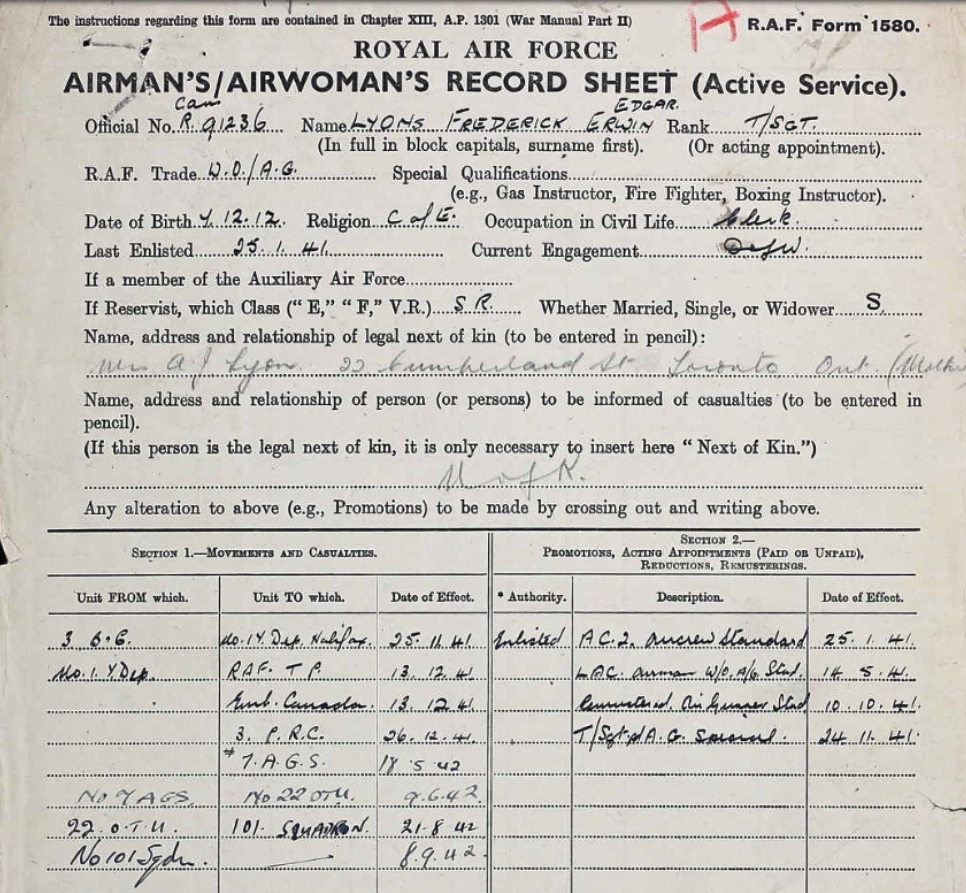 The instructions regarding this form are contained in Chapter XIII, A.P. 1301 (War Manual Part II)
R.A.F. Form 1580.
ROYAL AIR FORCE
AIRMAN'S/AIRWOMAN'S RECORD SHEET (Active Service).
Can EDGAR.
Official No. R.91236 Name LYONS FREDERICK ERWIN Rank T/SGT.
(In full in block capitals, surname first). (Or acting appointment).
R.A.F. Trade W.O./A.G. Special Qualifications
(e.g., Gas Instructor, Fire Fighter, Boxing Instructor).
Date of Birth 7.12.12. Religion C of E. Occupation in Civil Life Clerk.
Last Enlisted 25.1.41. Current Engagement
If a member of the Auxiliary Air Force
If Reservist, which Class ("E," "F," V.R.) S.R. Whether Married, Single, or Widower S.
Name, address and relationship of legal next of kin (to be entered in pencil):
Mrs A J Lyons 22 Cumberland St Toronto Ont.
Name, address and relationship of person (or persons) to be informed of casualties (to be entered in
pencil).
(If this person is the legal next of kin, it is only necessary to insert here "Next of Kin.")
N of K.
Any alteration to above (e.g., Promotions) to be made by crossing out and writing above.
SECTION 1.—MOVEMENTS AND CASUALTIES. SECTION 2.—
PROMOTIONS, ACTING APPOINTMENTS (PAID OR UNPAID),
REDUCTIONS, REMUSTERINGS.
Unit FROM which. Unit TO which. Date of Effect. * Authority. Description. Date of Effect.
3 B.G. No.1 Y Dep. Halifax. 25.11.41. Enlisted A.C.2. Aircrew Standard 25.1.41.
No.1.Y.Dep. RAF. T.P. 13.12.41. LAC. airman W/O. A/G. Stad. 14.5.41.
Emb. Canada. 13.12.41 Remustered. Air Gunner Stad 10.10.41.
3. P.R.C. 26.12.41. T/Sgt A.G. 24.11.41.
* 7.A.G.S. 18.5.42
No 7 AGS. No 22 OTU. 9.6.42.
22.O.T.U. 101. SQUADRON. 21.8.42
No 101 Sqdn. 8.9.42.